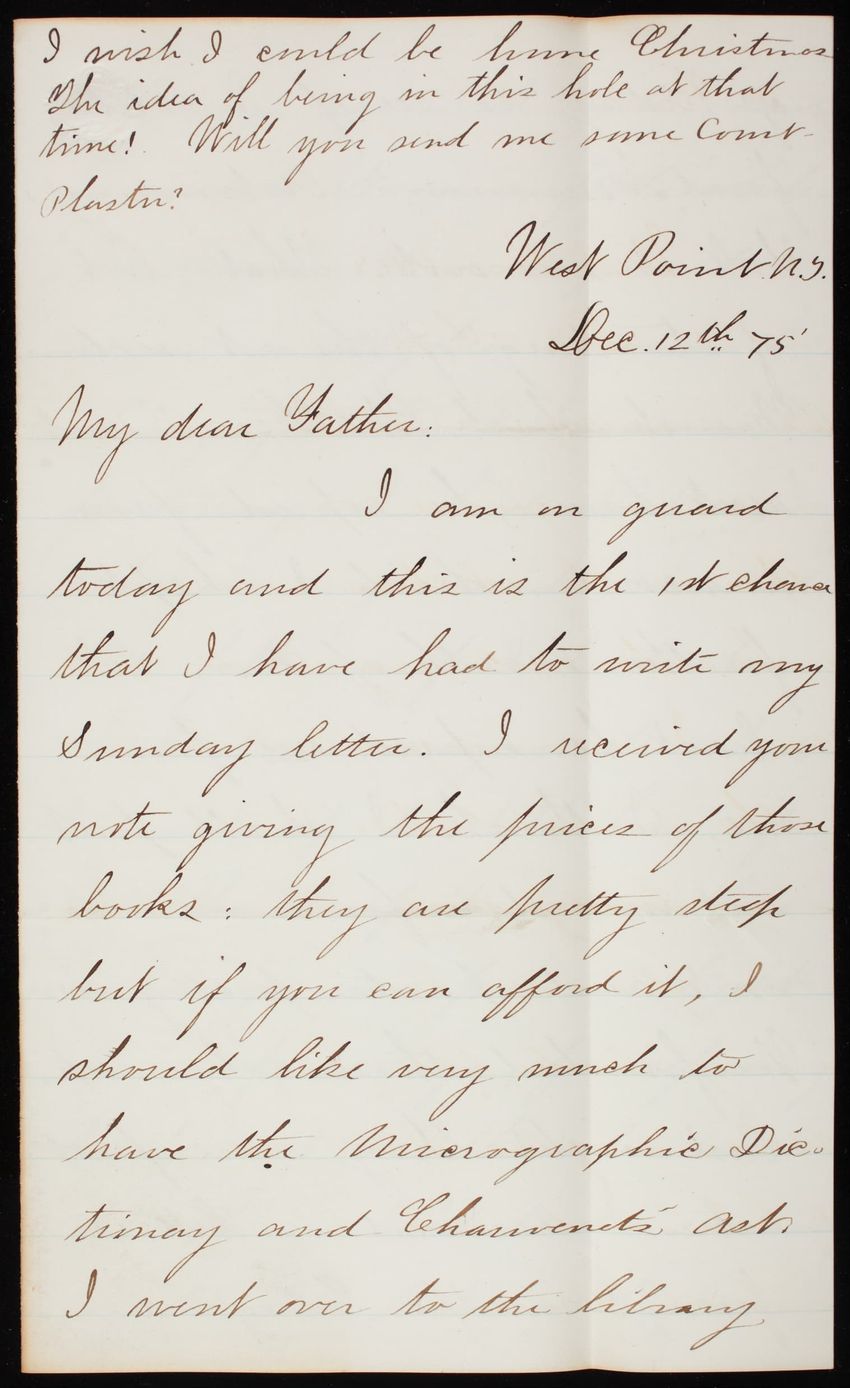 I wish I could be home Christmas
The idea of being in this hole at that
time! Will you send me some Court-
Plaster?
West Point N.Y.
Dec. 12th 75'
My dear Father:
I am on guard
today and this is the 1st chance
that I have had to write my
Sunday letter. I received your
note giving the prices of those
books: they are pretty steep
but if you can afford it, I
should like very much to
have the Micrographic Dic-
tionay and Chauvenet's Ast.
I went over to the library